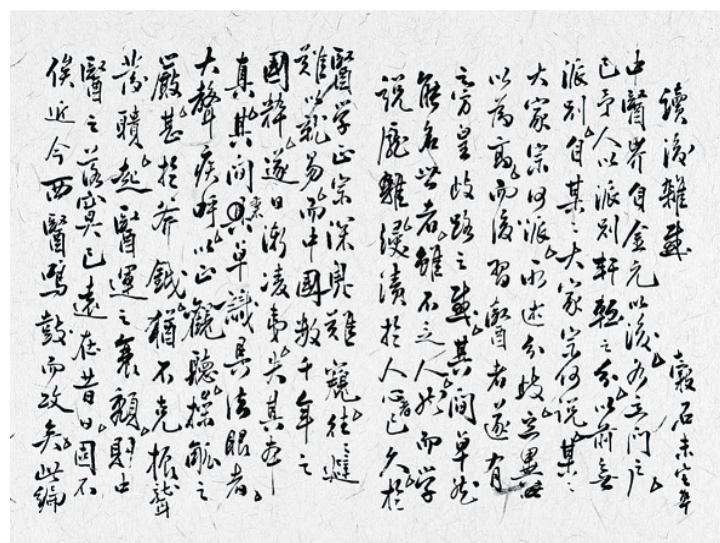 讀後雜感
穀石未定草
中醫界自金元以後各立門戶
已予人以派別軒輊之分以前無
派別自某〻大家宗何說某〻
大家宗何派派述分歧立異
以為高而後習醫者遂有
之彷皇歧路之感其間卓然
能名世者雖不乏人然而學
說龐雜浸漬於人心已久於
醫學正宗深奧難窺往〻避
難以就易而中國數千年之
國粹遂日漸凌夷失其本
真其間素具卓識具法眼者
大聲疾呼以正觀聽操觚之
嚴甚於斧鉞猶不克振聾
發聵起醫運之衰頹則中
醫之落寞已遠在昔日固不
俟近今西醫鳴鼓而攻矣此編